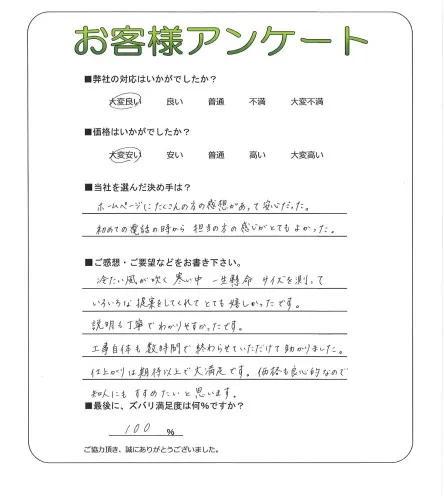 お客様アンケート
■弊社の対応はいかがでしたか?
大変良い 良い 普通 不満 大変不満
■価格はいかがでしたか?
大変安い 安い 普通 高い 大変高い
■当社を選んだ決め手は?
ホームページにたくさんの方の感想があって安心だった。
初めての電話の時から 担当の方の感じがとてもよかった。
■ご感想・ご要望などをお書き下さい。
冷たい風が吹く 寒い中 一生懸命 サイズを測って
いろいろな提案をしてくれて とても嬉しかったです。
説明も丁寧でわかりやすかったです。
工事自体も数時間で終わらせていただけて助かりました。
仕上がりは期待以上で大満足です。価格も良心的なので
知人にもすすめたいと思います。
■最後に、ズバリ満足度は何%ですか?
100 %
ご協力頂き、誠にありがとうございました。